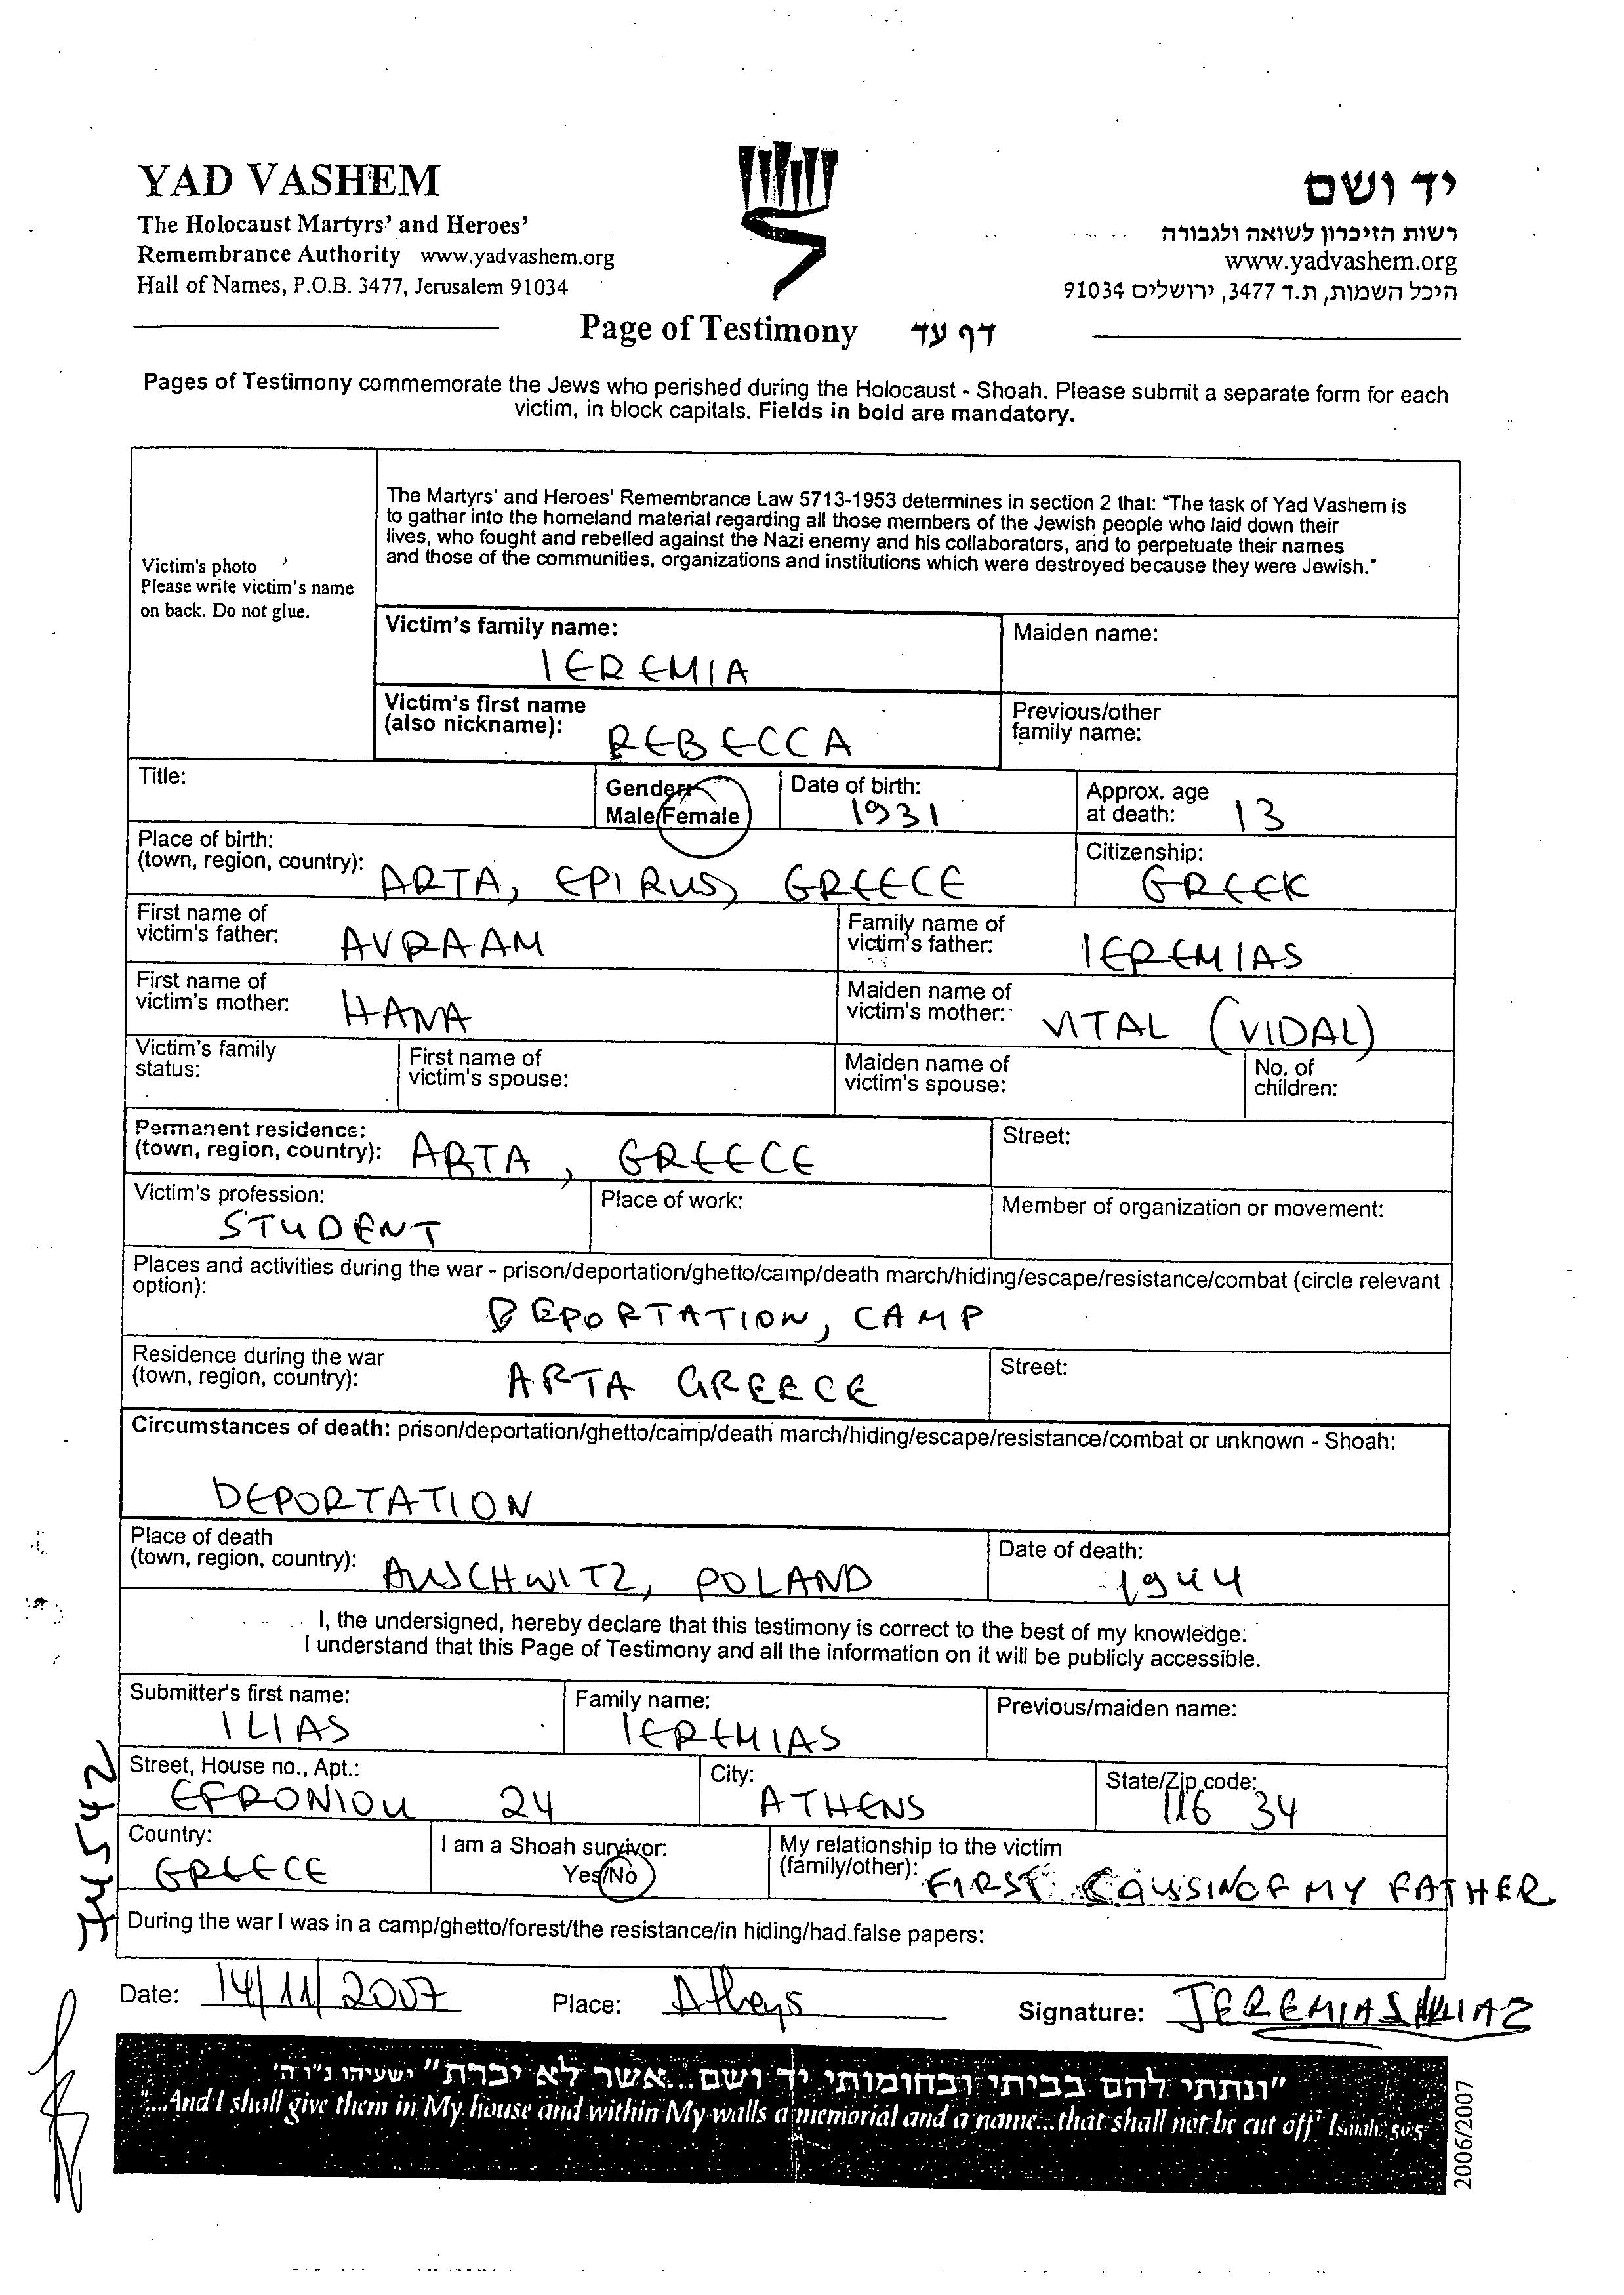 YAD VASHEM
The Holocaust Martyrs' and Heroes'
Remembrance Authority www.yadvashem.org
Hall of Names, P.O.B. 3477, Jerusalem 91034
יד ושם
רשות הזיכרון לשואה ולגבורה
www.yadvashem.org
היכל השמות, ת.ד 3477, ירושלים 91034
Page of Testimony דף עד
Pages of Testimony commemorate the Jews who perished during the Holocaust - Shoah. Please submit a separate form for each
victim, in block capitals. Fields in bold are mandatory.
Victim's photo
Please write victim's name
on back. Do not glue.
The Martyrs' and Heroes' Remembrance Law 5713-1953 determines in section 2 that: "The task of Yad Vashem is
to gather into the homeland material regarding all those members of the Jewish people who laid down their
lives, who fought and rebelled against the Nazi enemy and his collaborators, and to perpetuate their names
and those of the communities, organizations and institutions which were destroyed because they were Jewish."
Victim's family name:
IEREMIA
Maiden name:
Victim's first name
(also nickname):
REBECCA
Previous/other
family name:
Title:
Gender:
Male/Female
Date of birth:
1931
Approx. age
at death: 13
Place of birth:
(town, region, country): ARTA, EPIRUS, GREECE
Citizenship:
GREEK
First name of
victim's father: AVRAAM
Family name of
victim's father: IEREMIAS
First name of
victim's mother: HANA
Maiden name of
victim's mother: VITAL (VIDAL)
Victim's family
status:
First name of
victim's spouse:
Maiden name of
victim's spouse:
No. of
children:
Permanent residence:
(town, region, country): ARTA, GREECE
Street:
Victim's profession:
STUDENT
Place of work:
Member of organization or movement:
Places and activities during the war - prison/deportation/ghetto/camp/death march/hiding/escape/resistance/combat (circle relevant
option):
DEPORTATION, CAMP
Residence during the war
(town, region, country): ARTA GREECE
Street:
Circumstances of death: prison/deportation/ghetto/camp/death march/hiding/escape/resistance/combat or unknown - Shoah:
DEPORTATION
Place of death
(town, region, country): AUSCHWITZ, POLAND
Date of death:
1944
I, the undersigned, hereby declare that this testimony is correct to the best of my knowledge.
I understand that this Page of Testimony and all the information on it will be publicly accessible.
Submitter's first name:
ILIAS
Family name:
IEREMIAS
Previous/maiden name:
Street, House no., Apt.:
EFRONIOU 24
City:
ATHENS
State/Zip code:
116 34
Country:
GREECE
I am a Shoah survivor:
Yes/No
My relationship to the victim
(family/other): FIRST COUSIN OF MY FATHER
During the war I was in a camp/ghetto/forest/the resistance/in hiding/had false papers:
Date: 14/11/2007
Place: Athens
Signature: JEREMIAS ILIAS
"ונתתי להם בביתי ובחומותי יד ושם...אשר לא יכרת" ישעיהו נ"ו ה'
"...And I shall give them in My house and within My walls a memorial and a name...that shall not be cut off" Isaiah 56:5
2006/2007